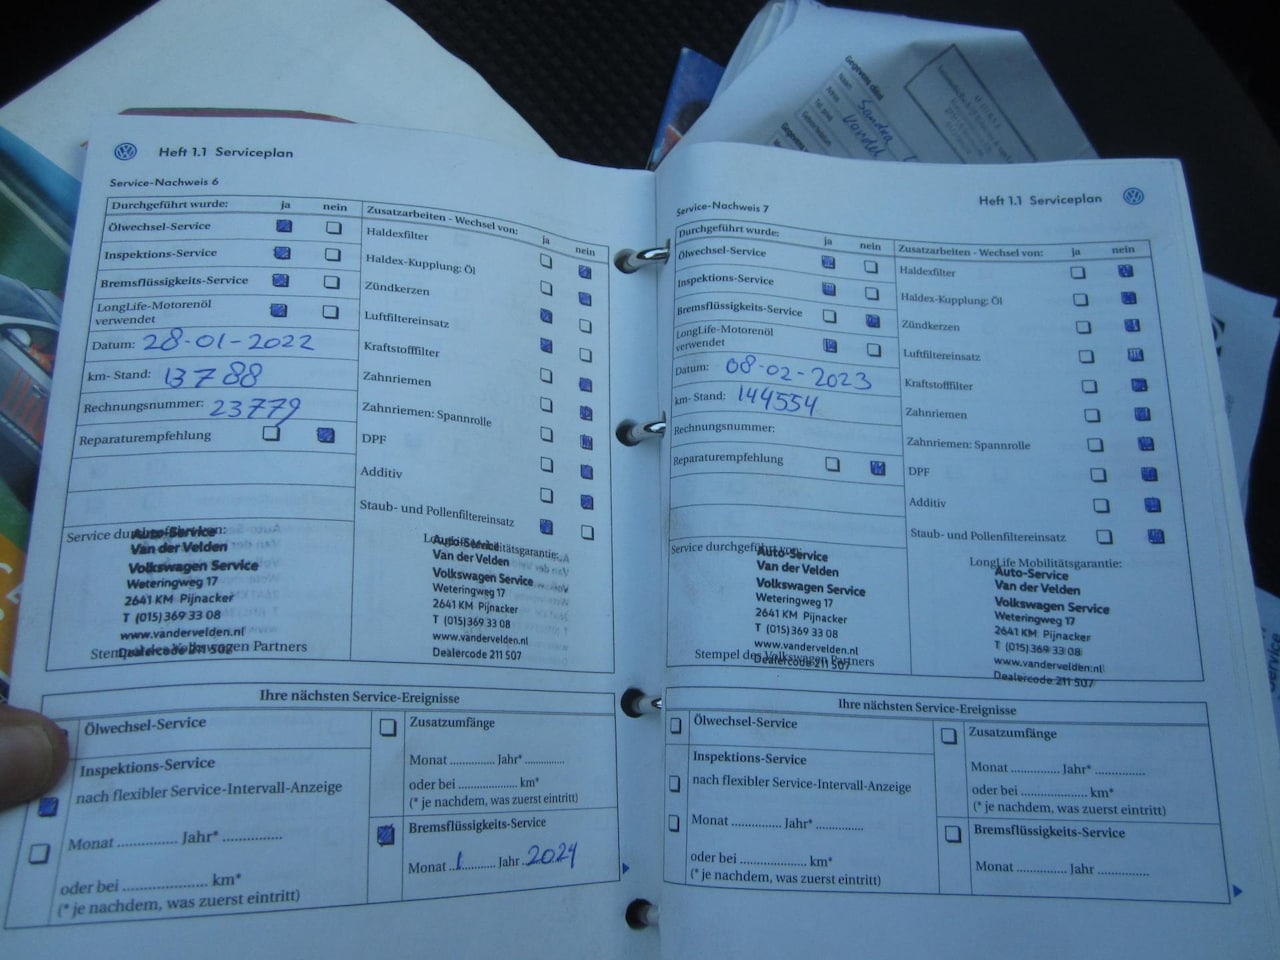 Heft 1.1 Serviceplan
Service-Nachweis 6
Durchgeführt wurde: ja nein
Ölwechsel-Service
Inspektions-Service
Bremsflüssigkeits-Service
LongLife-Motorenöl
verwendet
Datum: 28-01-2022
km- Stand: 13788
Rechnungsnummer: 23779
Reparaturempfehlung
Zusatzarbeiten - Wechsel von: ja nein
Haldexfilter
Haldex-Kupplung: Öl
Zündkerzen
Luftfiltereinsatz
Kraftstofffilter
Zahnriemen
Zahnriemen: Spannrolle
DPF
Additiv
Staub- und Pollenfiltereinsatz
Service durchgeführt von:
Auto-Service
Van der Velden
Volkswagen Service
Weteringweg 17
2641 KM Pijnacker
T (015) 369 33 08
www.vandervelden.nl
Dealercode 211 507
Stempel des Volkswagen Partners
LongLife Mobilitätsgarantie:
Auto-Service
Van der Velden
Volkswagen Service
Weteringweg 17
2641 KM Pijnacker
T (015) 369 33 08
www.vandervelden.nl
Dealercode 211 507
Ihre nächsten Service-Ereignisse
Ölwechsel-Service
Inspektions-Service
nach flexibler Service-Intervall-Anzeige
Monat ............... Jahr* ...............
oder bei ..................... km*
(* je nachdem, was zuerst eintritt)
Zusatzumfänge
Monat ........... Jahr* .............
oder bei ..................... km*
(* je nachdem, was zuerst eintritt)
Bremsflüssigkeits-Service
Monat 1 Jahr 2024
Heft 1.1 Serviceplan
Service-Nachweis 7
Durchgeführt wurde: ja nein
Ölwechsel-Service
Inspektions-Service
Bremsflüssigkeits-Service
LongLife-Motorenöl
verwendet
Datum: 08-02-2023
km- Stand: 144554
Rechnungsnummer:
Reparaturempfehlung
Zusatzarbeiten - Wechsel von: ja nein
Haldexfilter
Haldex-Kupplung: Öl
Zündkerzen
Luftfiltereinsatz
Kraftstofffilter
Zahnriemen
Zahnriemen: Spannrolle
DPF
Additiv
Staub- und Pollenfiltereinsatz
Service durchgeführt von:
Auto-Service
Van der Velden
Volkswagen Service
Weteringweg 17
2641 KM Pijnacker
T (015) 369 33 08
www.vandervelden.nl
Dealercode 211 507
Stempel des Volkswagen Partners
LongLife Mobilitätsgarantie:
Auto-Service
Van der Velden
Volkswagen Service
Weteringweg 17
2641 KM Pijnacker
T (015) 369 33 08
www.vandervelden.nl
Dealercode 211 507
Ihre nächsten Service-Ereignisse
Ölwechsel-Service
Inspektions-Service
nach flexibler Service-Intervall-Anzeige
Monat ............... Jahr* ...............
oder bei ..................... km*
(* je nachdem, was zuerst eintritt)
Zusatzumfänge
Monat ............ Jahr* .............
oder bei ..................... km*
(* je nachdem, was zuerst eintritt)
Bremsflüssigkeits-Service
Monat ............ Jahr .............
Sandra